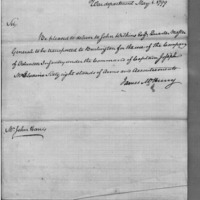 War department May 1. 1799
Sir
Be pleased to deliver to John Wilkins Esqr. Quarter Master
General to be transported to Burlington for the use of the Company
of Artillerists under the Command of Captain Joseph
Sixty eight stands of Arms and Accoutrements
James McHenry
Mr. John Harris